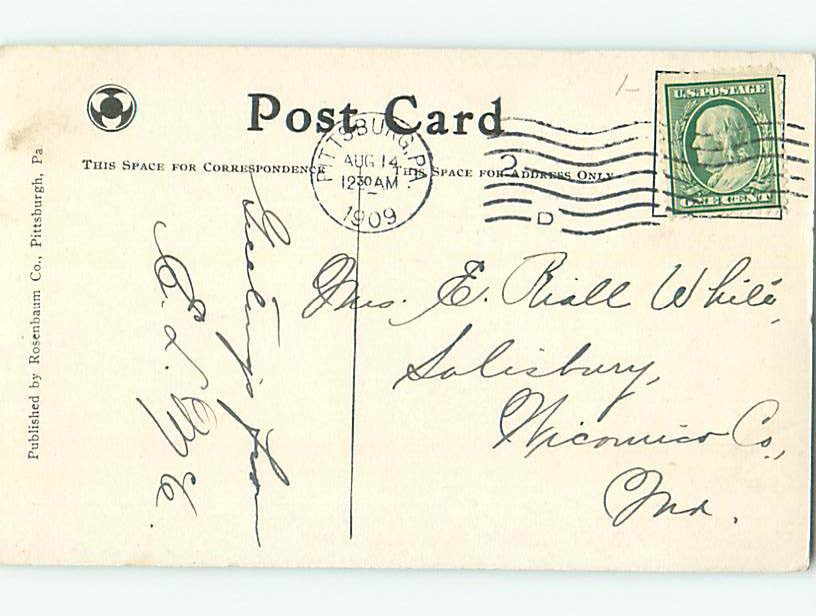 Post Card
THIS SPACE FOR CORRESPONDENCE
THIS SPACE FOR ADDRESS ONLY
PITTSBURG, PA.
AUG 14
12 30 AM
1909
2
D
U.S. POSTAGE
ONE CENT
1-
Published by Rosenbaum Co., Pittsburgh, Pa
Greetings from
E. L. W. E.
Mrs. E. Riall White,
Salisbury,
Wicomico Co,
Md.